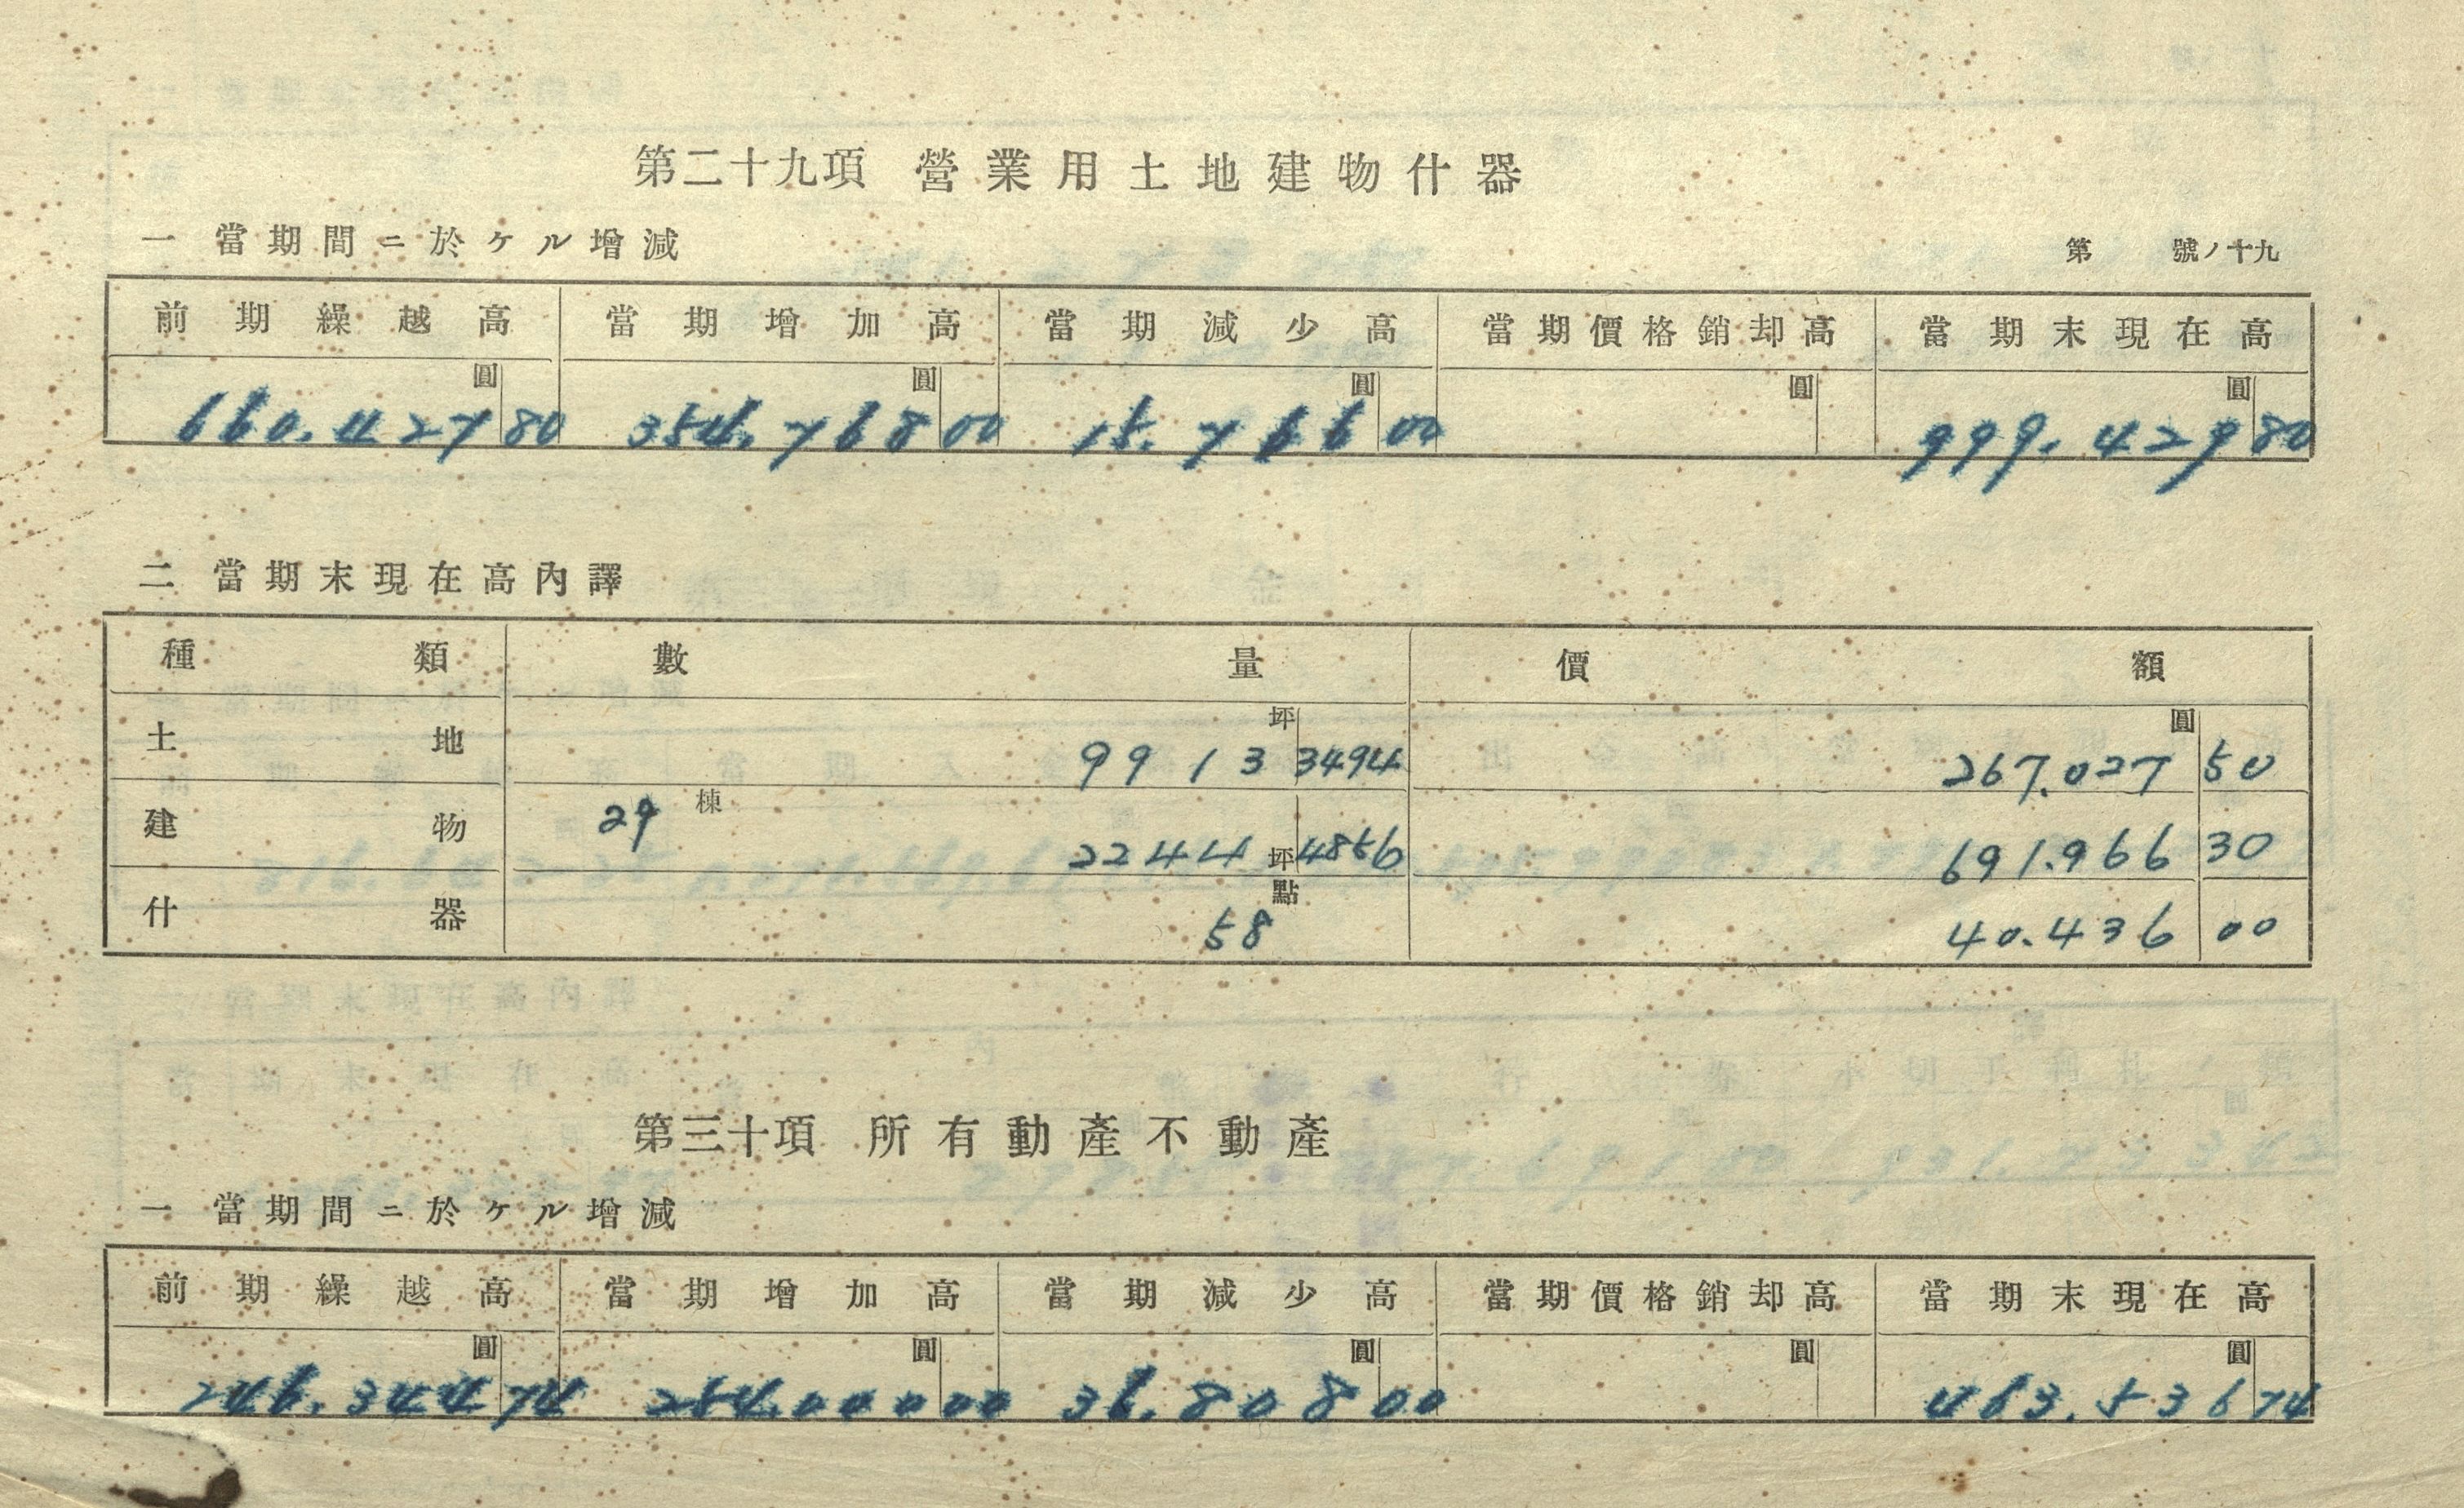 第二十九項 營業用土地建物什器
一 當期間ニ於ケル增減
第 號ノ十九
前期繰越高 當期增加高 當期減少高 當期價格銷却高 當期末現在高
圓 圓 圓 圓 圓
660.427 80 354.768 00 15.766 00 999.429 80
二 當期末現在高內譯
種類 數量 價額
坪 圓
土地 9913 3494 267.027 50
建物 29棟 2244坪4856 691.966 30
點
什器 58 40.436 00
第三十項 所有動產不動產
一 當期間ニ於ケル增減
前期繰越高 當期增加高 當期減少高 當期價格銷却高 當期末現在高
圓 圓 圓 圓 圓
246.344 74 254.000 00 36.808 00 463.536 74